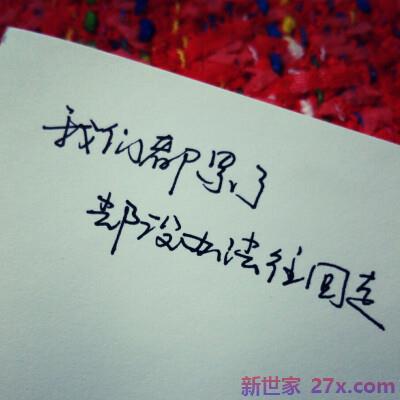 我们都累了
却没办法往回走
新世家 27x.com